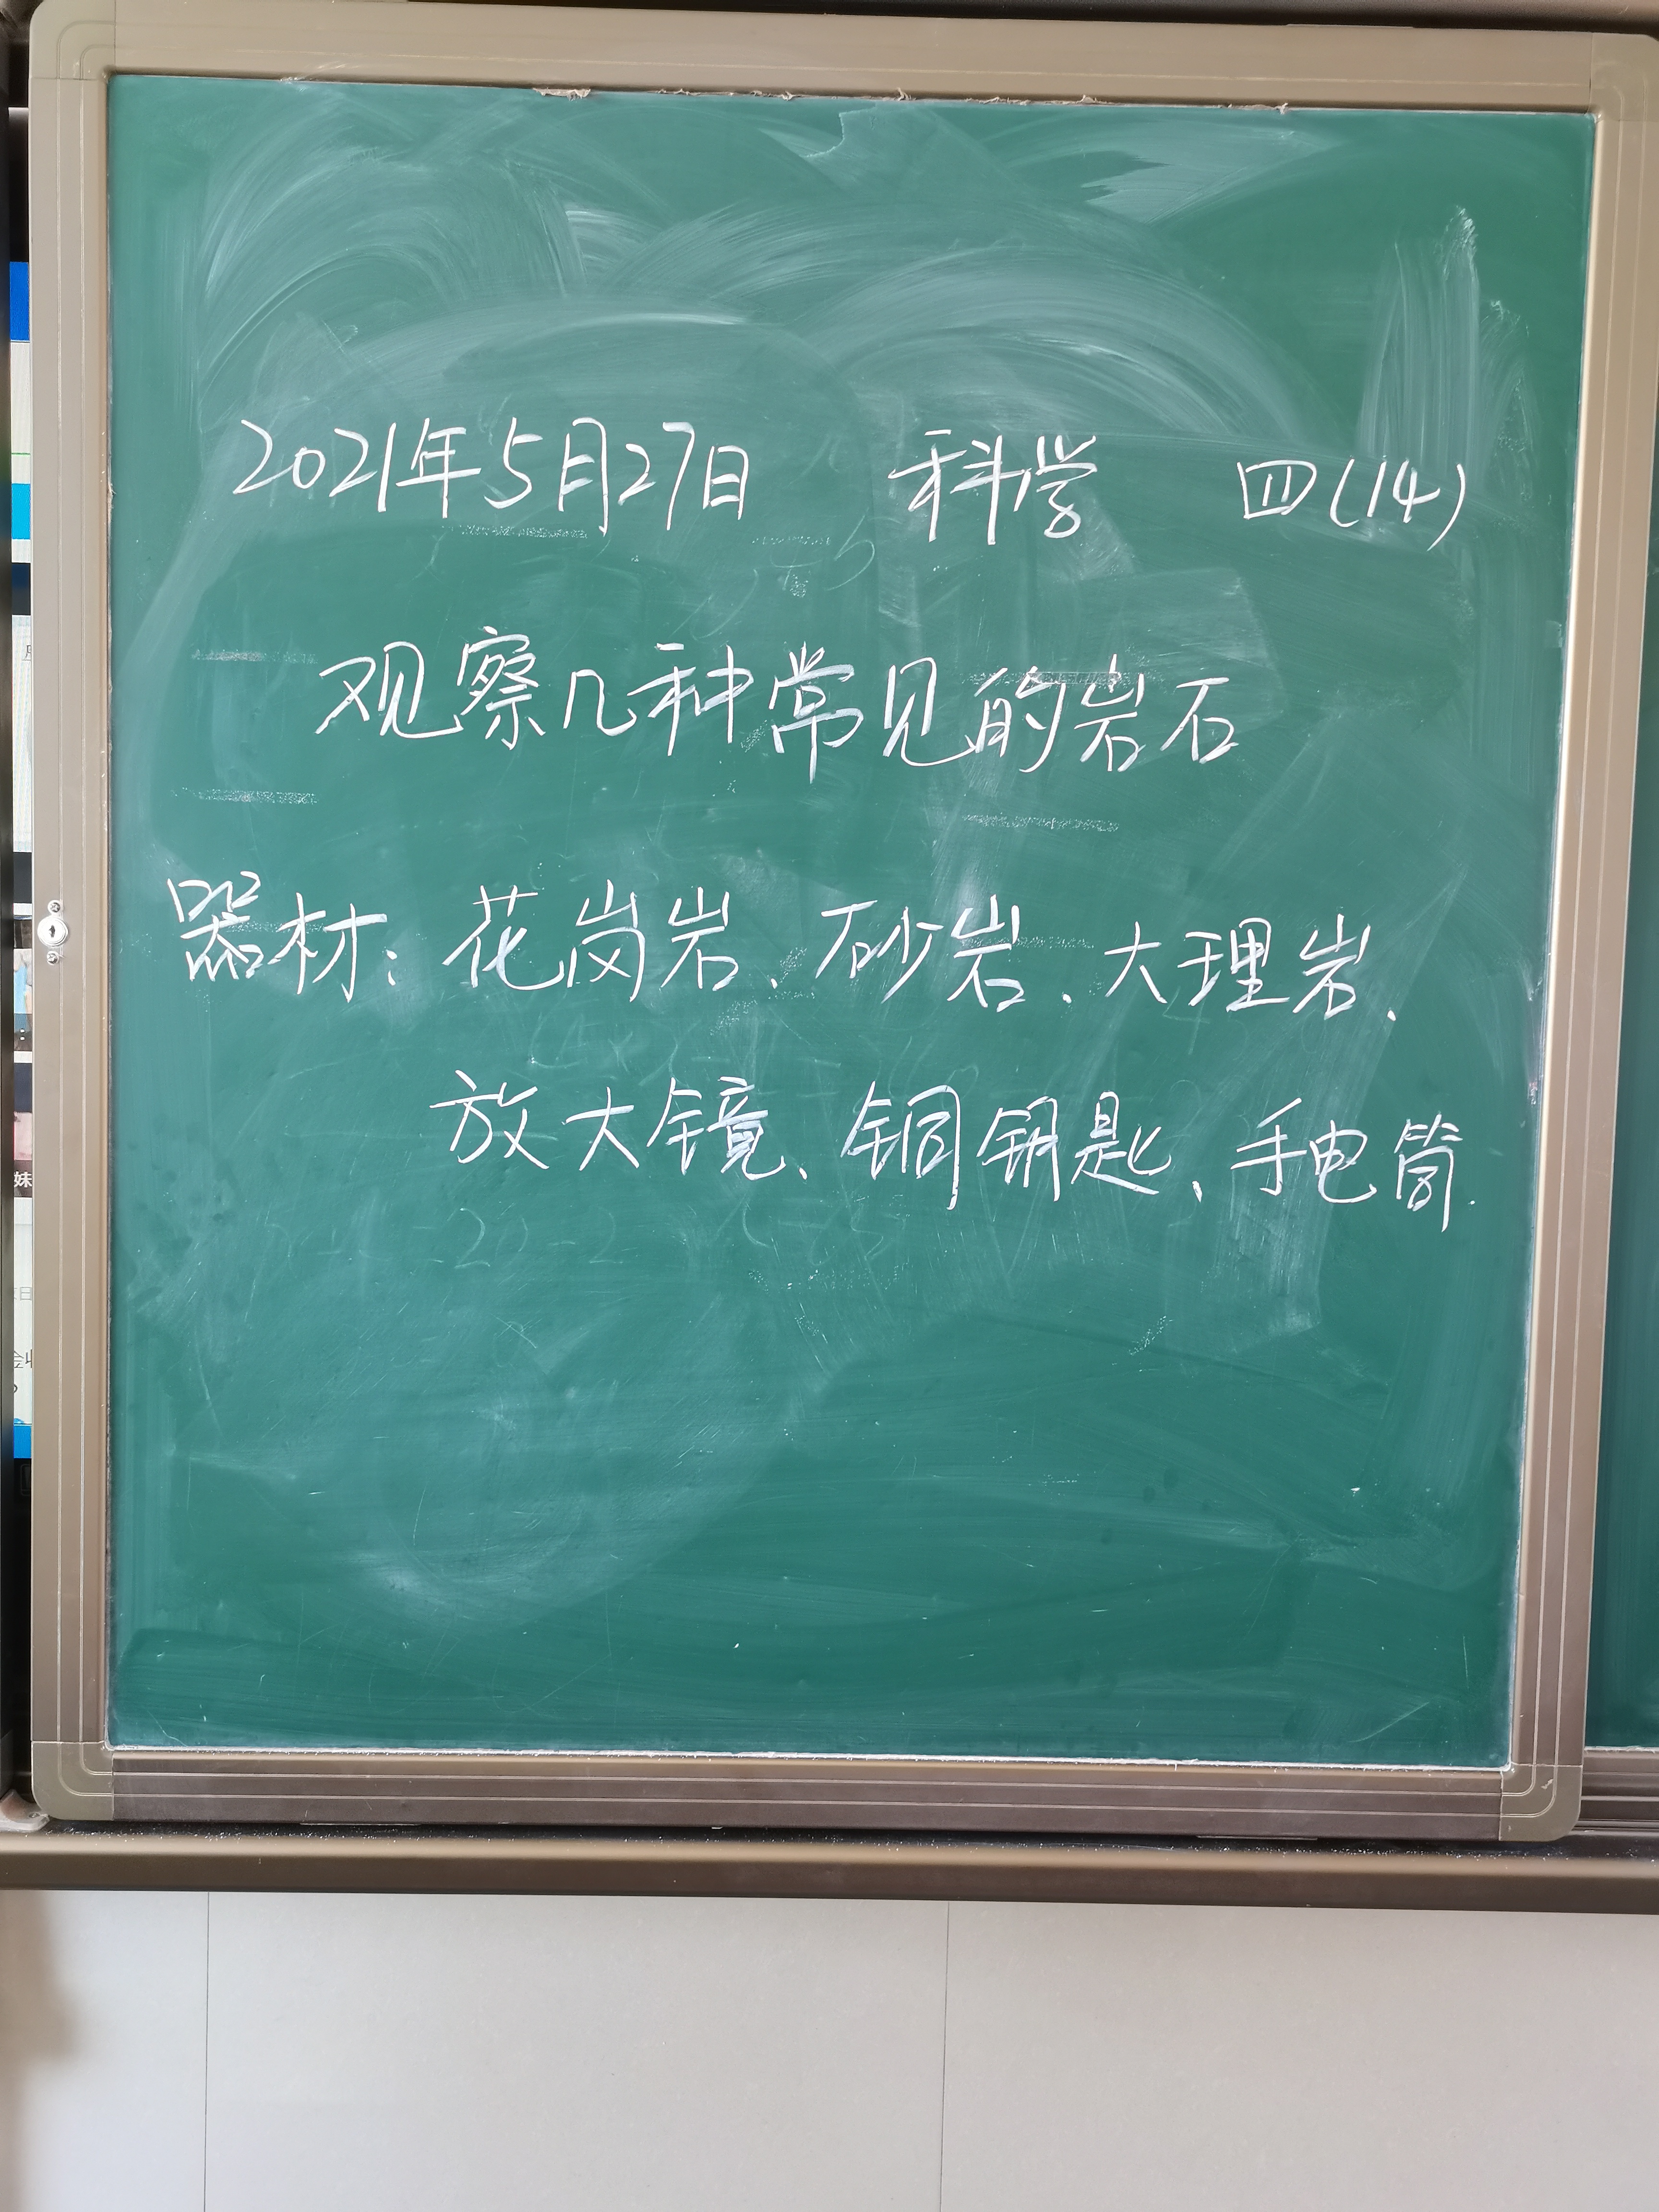 2021年5月27日 科学 四(14)
观察几种常见的岩石
器材：花岗岩、砂岩、大理岩、
放大镜、铜钥匙、手电筒.